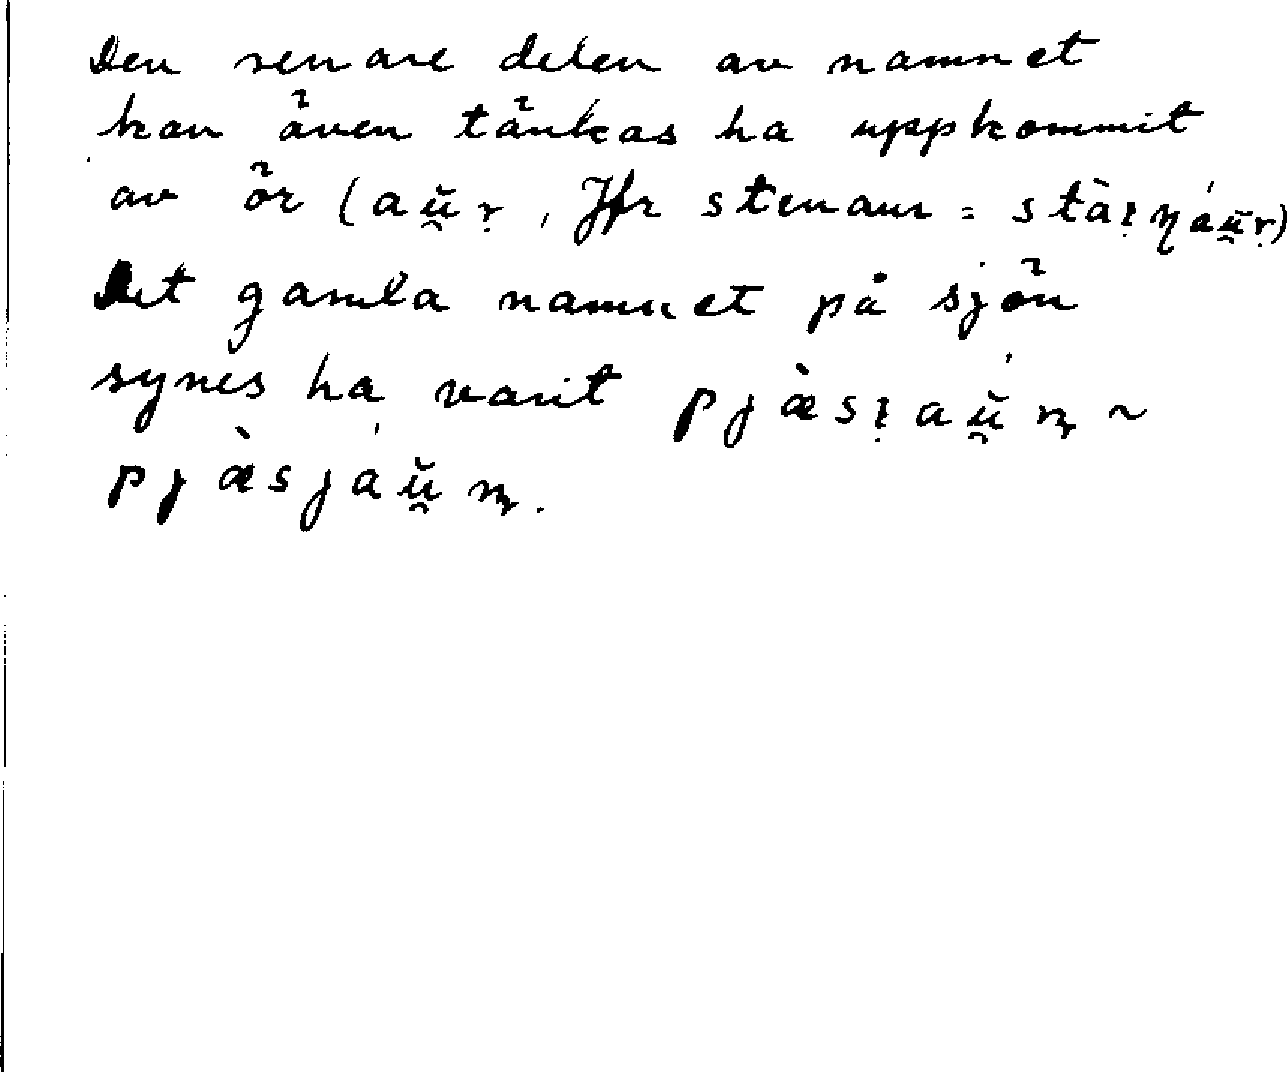 Den senare delen av namnet
kan även tänkas ha uppkommit
av ör (aŭ̯ṛ, Jfr stenaur = stàı̣ŋáŭ̯ṛ)
Det gamla namnet på sjön
synes ha varit pjæ̀sı̣aŭ̯ṇ ~
pjæ̀sjáŭ̯ṇ.